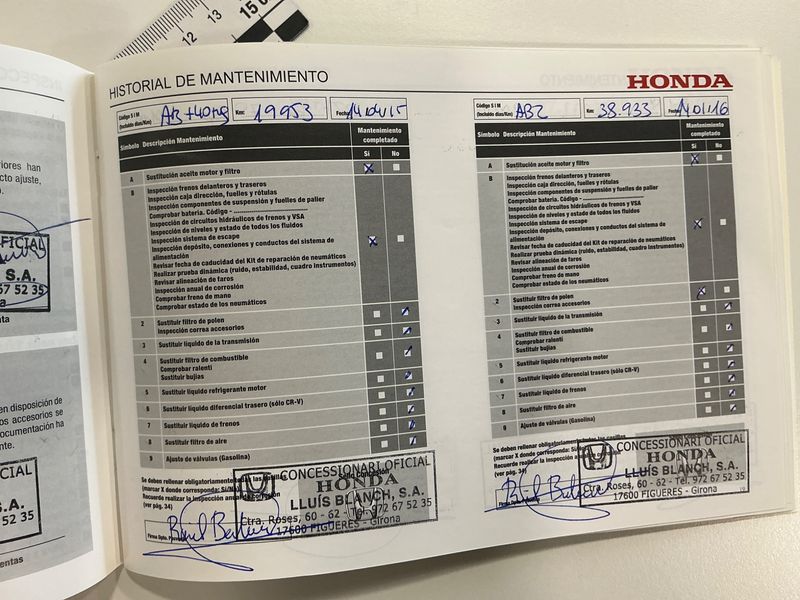 12
13
15
INSPECC
HISTORIAL DE MANTENIMIENTO
HONDA
riores han
cto ajuste,
OFICIAL
S.A.
67 52 35
en disposición de
os accesorios se
documentación ha
CIAL
S.A.
52 35
entas
Código S I M
(incluido días/Km)
Km:
19953
Fecha:
14/04/15
Símbolo Descripción Mantenimiento
Mantenimiento
completado
Si No
A Sustitución aceite motor y filtro
B Inspección frenos delanteros y traseros
Inspección caja dirección, fuelles y rótulas
Inspección componentes de suspensión y fuelles de palier
Comprobar batería. Código - ................................
Inspección de circuitos hidráulicos de frenos y VSA
Inspección de niveles y estado de todos los fluidos
Inspección sistema de escape
Inspección depósito, conexiones y conductos del sistema de
alimentación
Revisar fecha de caducidad del Kit de reparación de neumáticos
Realizar prueba dinámica (ruido, estabilidad, cuadro instrumentos)
Revisar alineación de faros
Inspección anual de corrosión
Comprobar freno de mano
Comprobar estado de los neumáticos
2 Sustituir filtro de polen
Inspección correa accesorios
3 Sustituir líquido de la transmisión
4 Sustituir filtro de combustible
Comprobar ralentí
Sustituir bujías
5 Sustituir líquido refrigerante motor
6 Sustituir líquido diferencial trasero (sólo CR-V)
7 Sustituir líquido de frenos
8 Sustituir filtro de aire
9 Ajuste de válvulas (Gasolina)
Se deben rellenar obligatoriamente
(marcar X donde corresponda: Si/No)
Recuerde realizar la inspección
(ver pág. 34)
CONCESSIONARI OFICIAL
HONDA
LLUÍS BLANCH, S.A.
Ctra. Roses, 60 - 62 - Tel. 972 67 52 35
17600 FIGUERES - Girona
Firma Dpto.
Código S I M
(incluido días/Km)
AB2
Km:
38.933
Fecha:
Símbolo Descripción Mantenimiento
Mantenimiento
completado
Si No
A Sustitución aceite motor y filtro
B Inspección frenos delanteros y traseros
Inspección caja dirección, fuelles y rótulas
Inspección componentes de suspensión y fuelles de palier
Comprobar batería. Código - ................................
Inspección de circuitos hidráulicos de frenos y VSA
Inspección de niveles y estado de todos los fluidos
Inspección sistema de escape
Inspección depósito, conexiones y conductos del sistema de
alimentación
Revisar fecha de caducidad del Kit de reparación de neumáticos
Realizar prueba dinámica (ruido, estabilidad, cuadro instrumentos)
Revisar alineación de faros
Inspección anual de corrosión
Comprobar freno de mano
Comprobar estado de los neumáticos
2 Sustituir filtro de polen
Inspección correa accesorios
3 Sustituir líquido de la transmisión
4 Sustituir filtro de combustible
Comprobar ralentí
Sustituir bujías
5 Sustituir líquido refrigerante motor
6 Sustituir líquido diferencial trasero (sólo CR-V)
7 Sustituir líquido de frenos
8 Sustituir filtro de aire
9 Ajuste de válvulas (Gasolina)
Se deben rellenar obligatoriamente todas las casillas
(marcar X donde corresponda: Si/No)
Recuerde realizar la inspección
(ver pág. 34)
CONCESSIONARI OFICIAL
HONDA
LLUÍS BLANCH, S.A.
Ctra. Roses, 60 - 62 - Tel. 972 67 52 35
17600 FIGUERES - Girona
Firma Dpto.